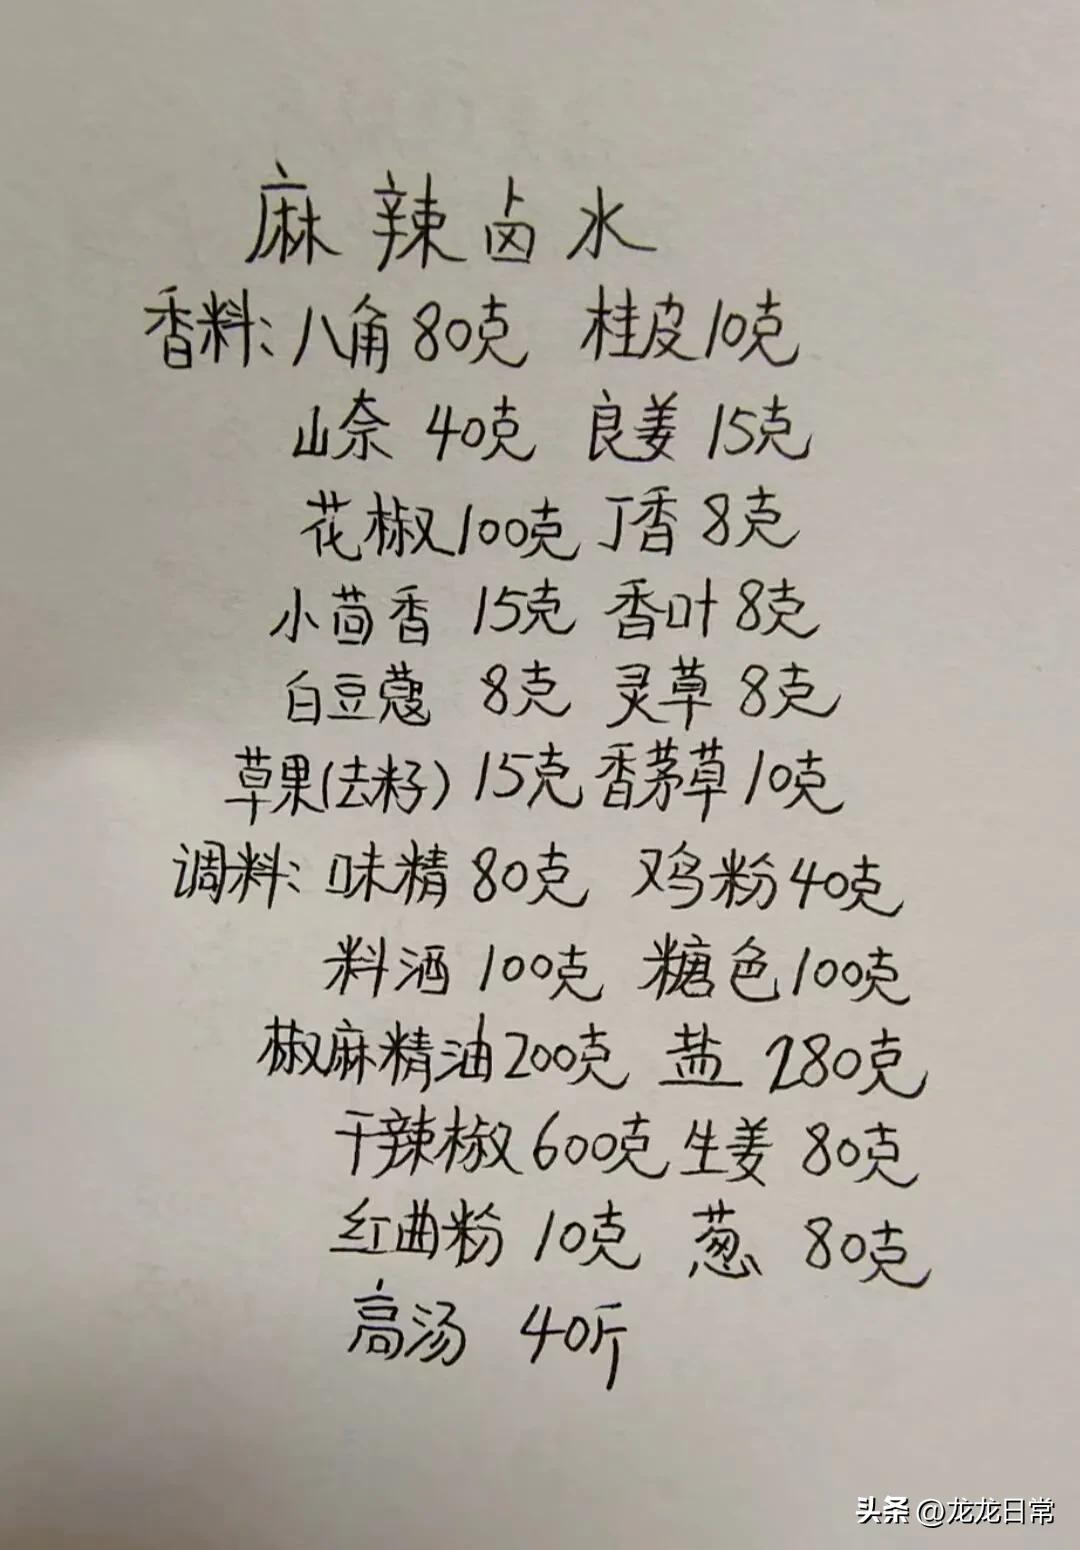 麻辣卤水
香料:八角80克 桂皮10克
山奈 40克 良姜 15克
花椒100克 丁香 8克
小茴香 15克 香叶 8克
白豆蔻 8克 灵草 8克
草果(去籽) 15克 香茅草 10克
调料:味精 80克 鸡粉 40克
料酒 100克 糖色 100克
椒麻精油200克 盐 280克
干辣椒 600克 生姜 80克
红曲粉 10克 葱 80克
高汤 40斤
头条 @龙龙日常